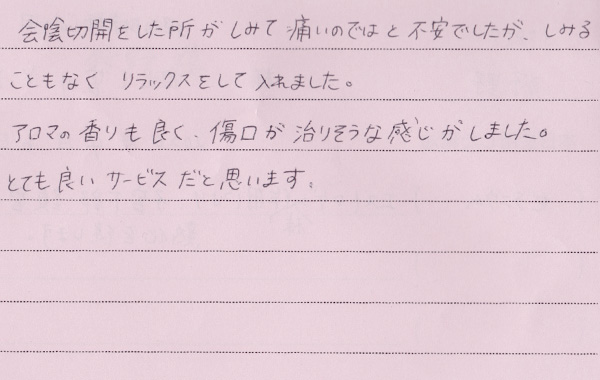 会陰切開をした所がしみて痛いのではと不安でしたが、しみる
こともなく リラックスをして入れました。
アロマの香りも良く、傷口が治りそうな感じがしました。
とても良いサービスだと思います。